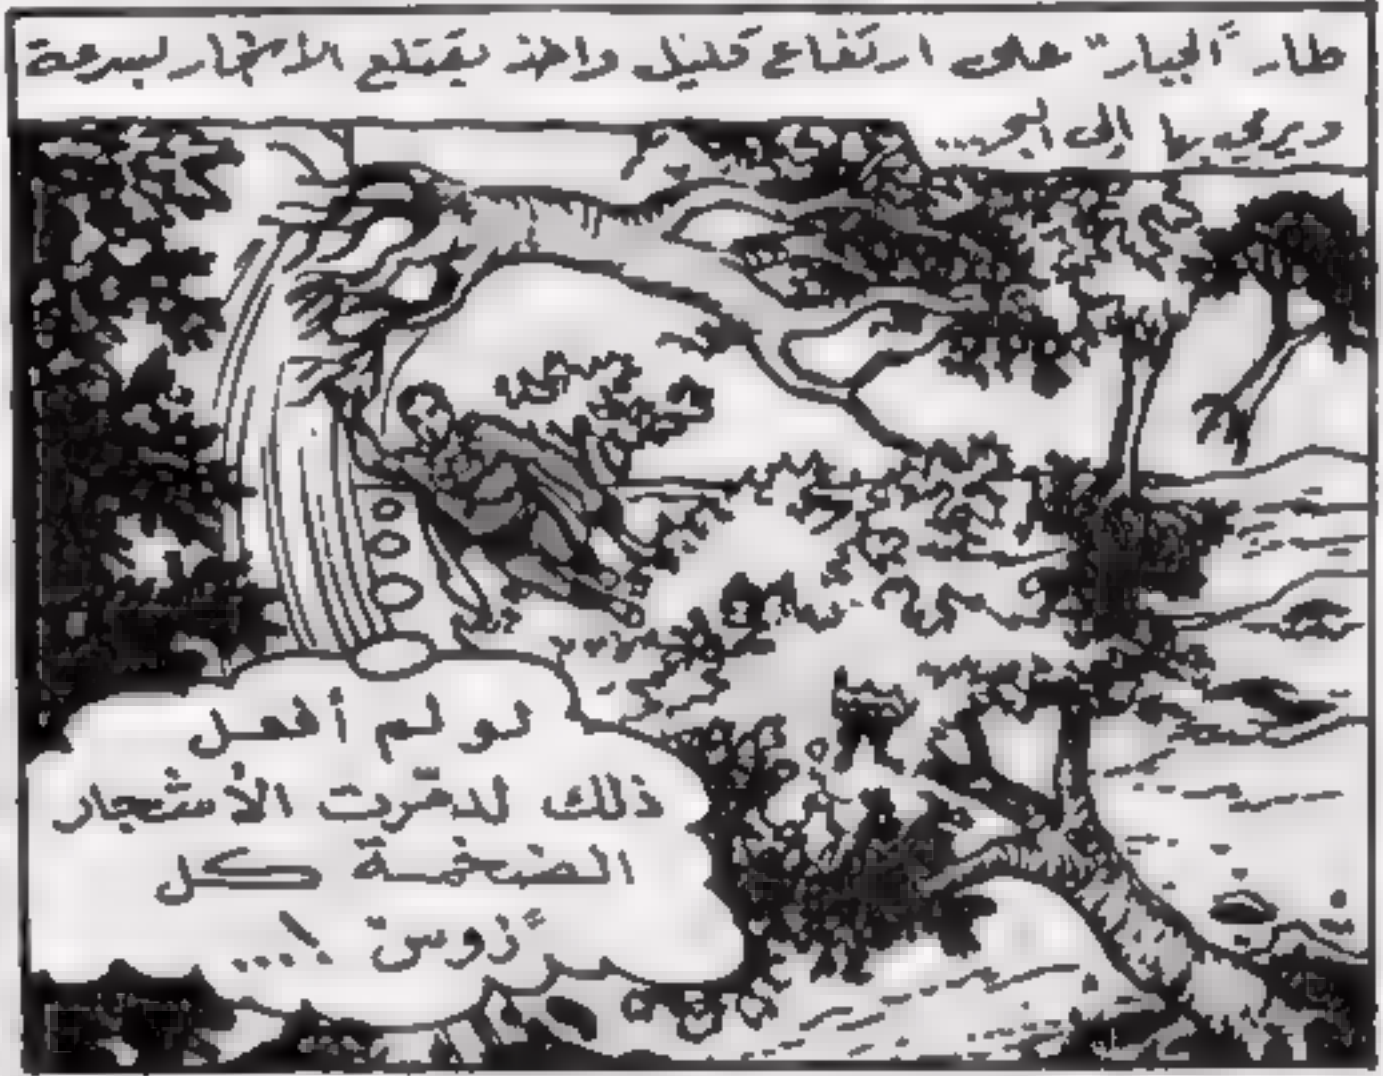 طار "الجبار" على ارتفاع قليل واخذ يقتلع الأشجار لسرعة
ويرمي بها إلى البحر...
لو لم أفعل
ذلك لدمّرت الأشجار
الضخمة كل
"زوس" !...